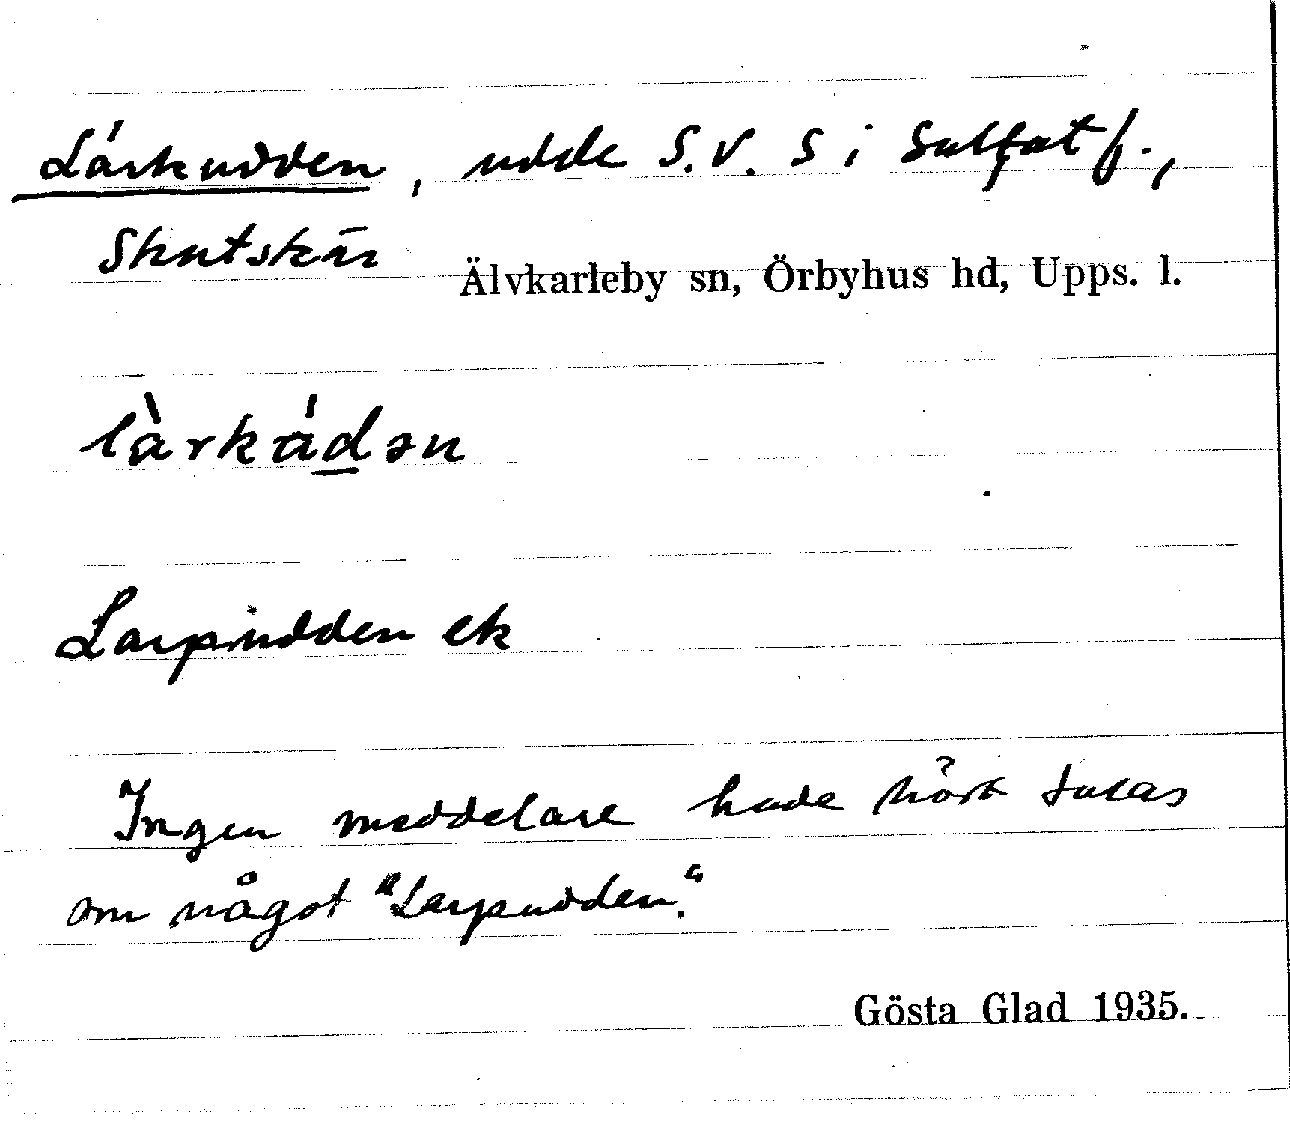 Lárkudden, udde S.V. S i Sulfatf.,
Skutskär
Älvkarleby sn, Örbyhus hd, Upps. l.
làrkádən
Larpudden ek
Ingen meddelare hade hört talas
om något "Larpudden".
Gösta Glad 1935.